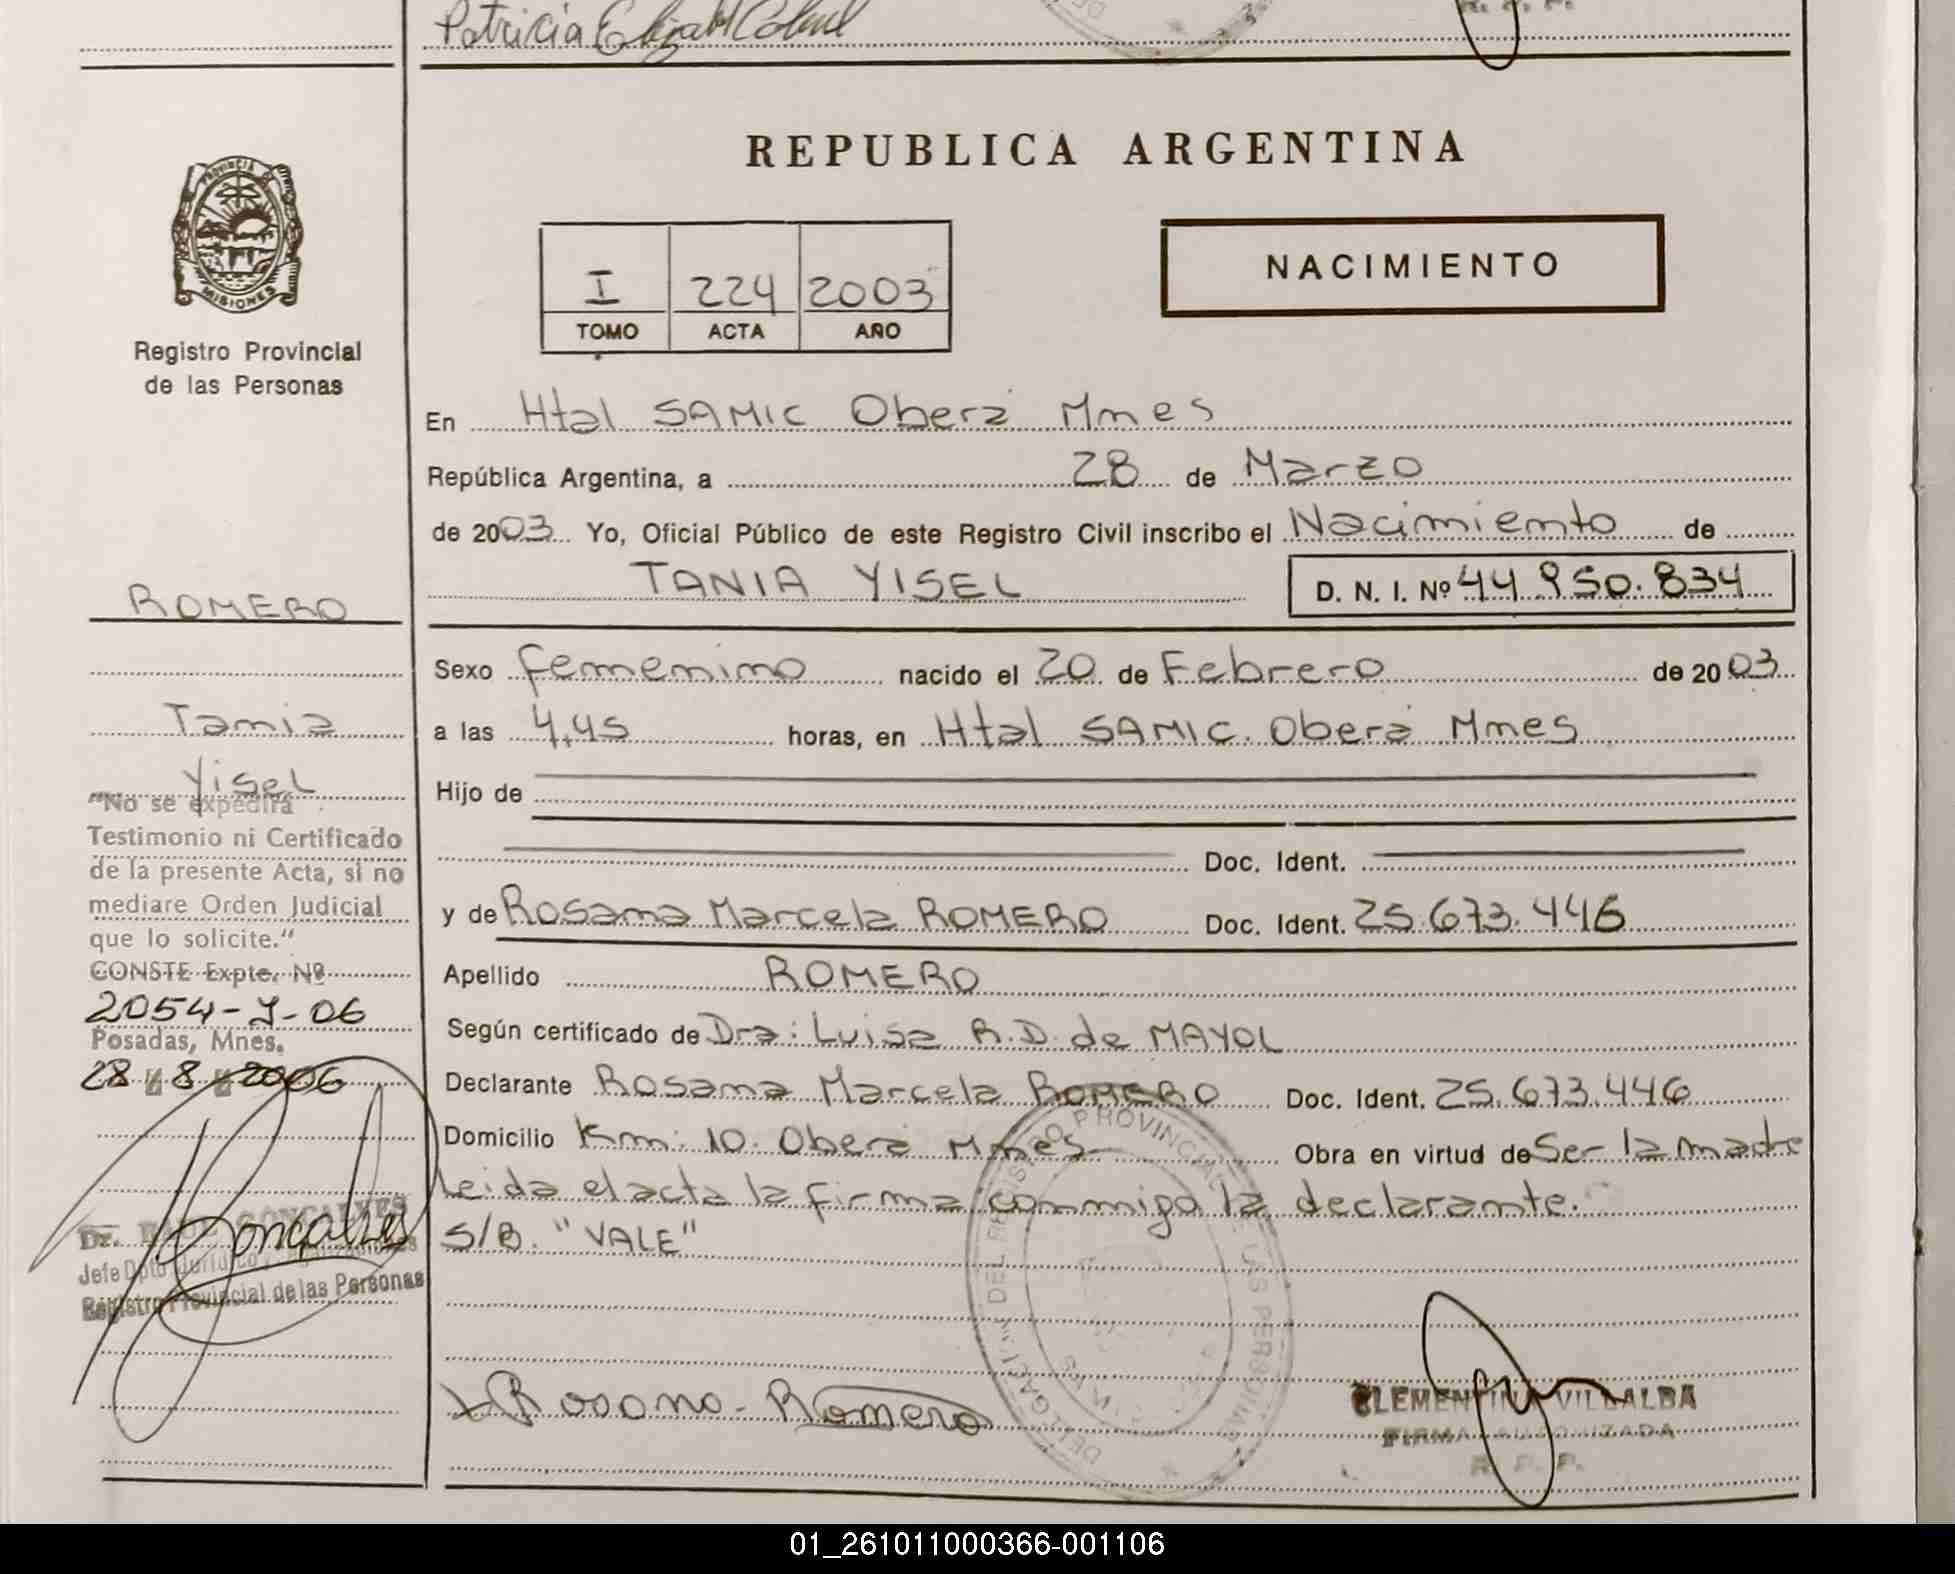 Patricia Elizabeth
REPUBLICA ARGENTINA
PROVINCIA DE
MISIONES
Registro Provincial
de las Personas
I 224 2003
TOMO ACTA AÑO
NACIMIENTO
En Htal SAMIC Oberá Mnes
República Argentina, a 28 de Marzo
de 2003 Yo, Oficial Público de este Registro Civil inscribo el Nacimiento de
TANIA YISEL D. N. I. Nº 44.950.834
ROMERO
Tania
Yisel
Sexo femenino nacido el 20 de Febrero de 2003
a las 4,45 horas, en Htal SAMIC. Oberá Mnes
Hijo de
Doc. Ident.
y de Rosana Marcela ROMERO Doc. Ident. 25.673.446
Apellido ROMERO
Según certificado de Dra: Luisa R.D. de MAYOL
Declarante Rosana Marcela ROMERO Doc. Ident. 25.673.446
Domicilio Km: 10. Oberá Mnes Obra en virtud de Ser la madre
Leida el acta la firma conmigo la declarante.
S/B. "VALE"
"No se expedirá
Testimonio ni Certificado
de la presente Acta, si no
mediare Orden Judicial
que lo solicite."
CONSTE Expte. Nº
2054-J-06
Posadas, Mnes.
28 / 8 / 2006
Goncalves
Dr. RAUL GONCALVES
Jefe Dpto. Jurídico
Registro Provincial de las Personas
DEL REGISTRO PROVINCIAL DE LAS PERSONAS
Rosana - Romero
CLEMENTINA VILLALBA
FIRMA AUTORIZADA
R. P. P.
01_261011000366-001106